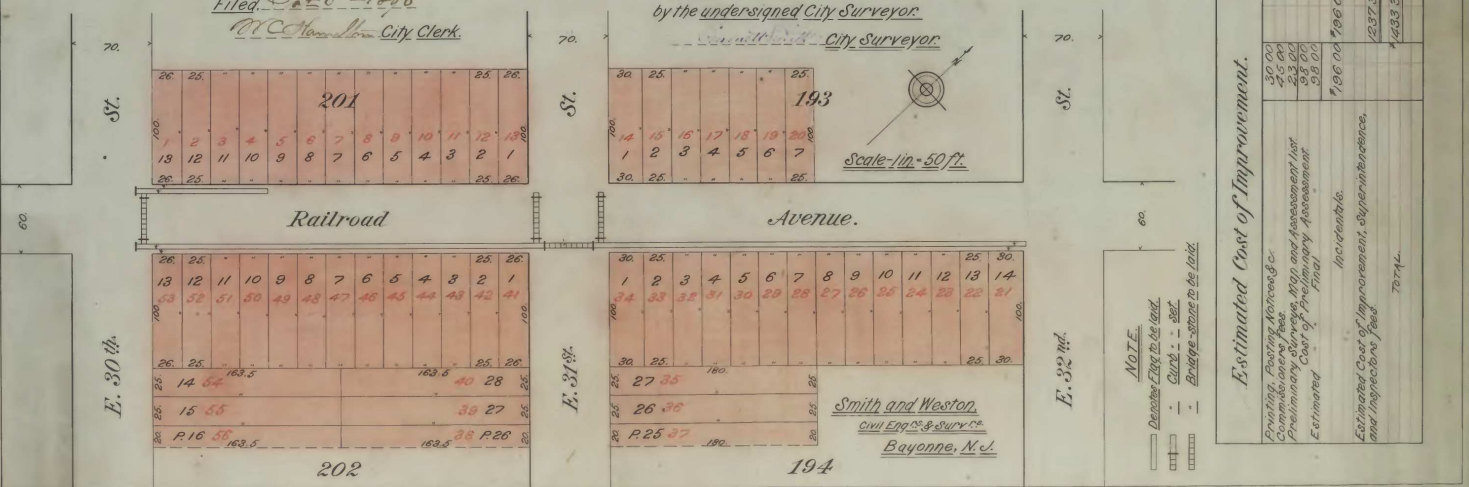 Filed.
City Clerk.
by the undersigned City Surveyor.
City Surveyor.
70. 70. 70.
St. St. St.
26. 25. " " " " " " " " " 25. 26.
201
100. 100.
1 2 3 4 5 6 7 8 9 10 11 12 13
13 12 11 10 9 8 7 6 5 4 3 2 1
26. 25. " " " " " " " " " 25. 26.
30. 25. " " " " 25.
193
100. 100.
14 15 16 17 18 19 20
1 2 3 4 5 6 7
30. 25. " " " " 25.
Scale-1in.=50ft.
60. 60.
Railroad Avenue.
26. 25. " " " " " " " " " 25. 26.
13 12 11 10 9 8 7 6 5 4 3 2 1
53 52 51 50 49 48 47 46 45 44 43 42 41
100. 100.
26. 25. " " " " " " " " " 25. 26.
30. 25. " " " " " " " " " " 25. 30.
1 2 3 4 5 6 7 8 9 10 11 12 13 14
34 33 32 31 30 29 28 27 26 25 24 23 22 21
100. 100.
30. 25. " " " " " " " " " " 25. 30.
E. 30th. E. 31st. E. 32nd.
163.5 163.5
25. 14 54 40 28 25.
25. 15 55 39 27 25.
20. P.16 56 38 P.26 20.
163.5 163.5
202
180.
25. 27 35 25.
25. 26 36 25.
20. P.25 37 20.
180.
194
Smith and Weston,
Civil Engrs. & Survrs.
Bayonne, N.J.
NOTE.
Denotes Flag to be laid.
" Curb " " set.
" Bridge-stone to be laid.
Estimated Cost of Improvement.
Printing, Posting Notices &c 30 00
Commissioners fees. 45 00
Preliminary Surveys, Map and Assessment list 23 00
Estimated Cost of Preliminary Assessment 98 00
" " Final " 98 00
Incidentals. $196 00 $196 0
Estimated Cost of Improvement, Superintendence,
and Inspectors fees. 1237 3
TOTAL $1433 3